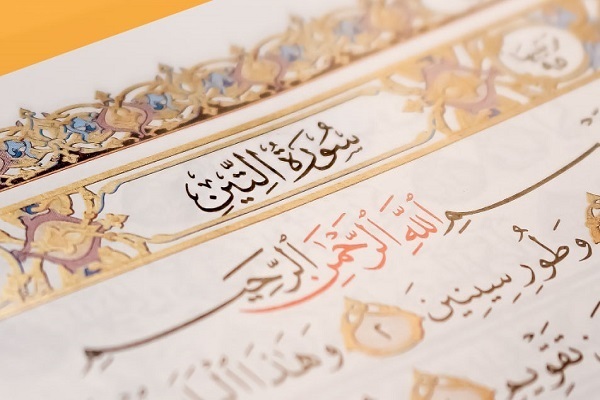 سُورَةُ ٱلتِّينِ
سْمِ ٱللَّهِ ٱلرَّحْمَٰنِ ٱلرَّحِيمِ
وَطُورِ سِينِينَ ٢ وَهَٰذَا
تَقْوِيمٍ